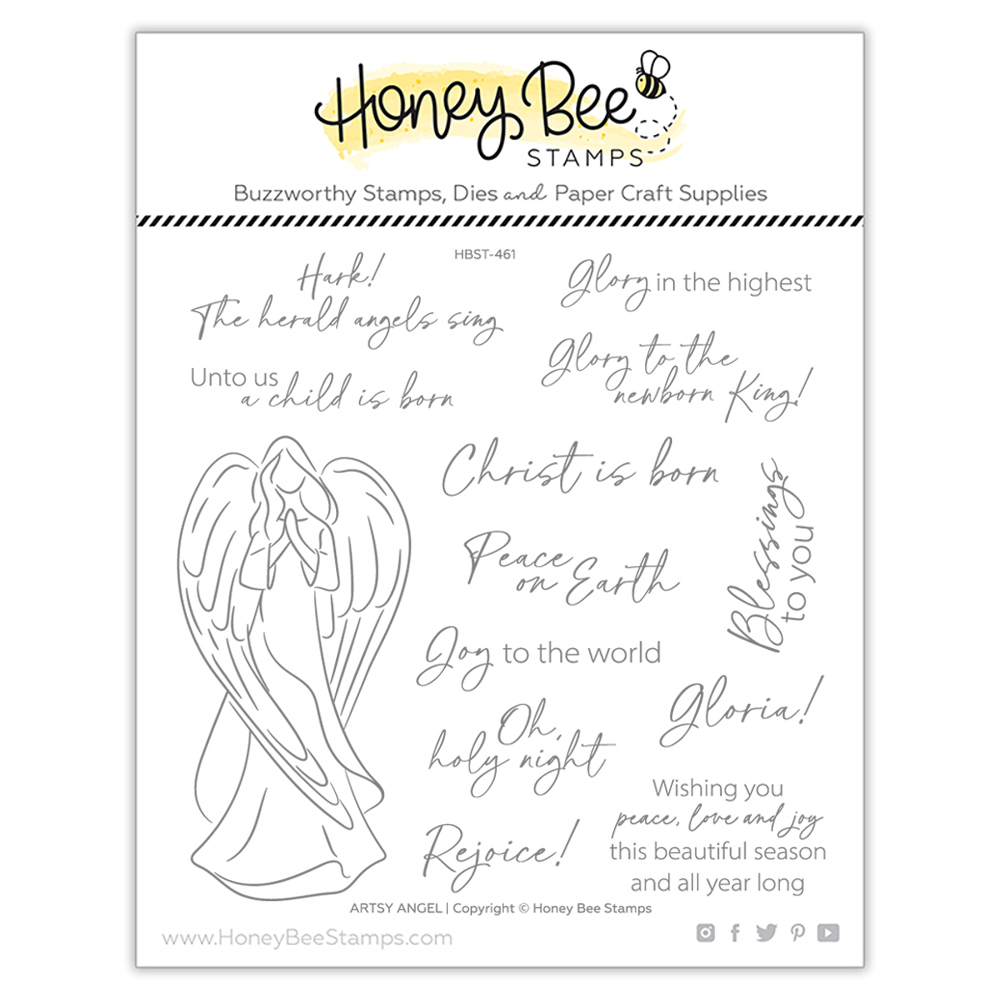 Honey Bee
STAMPS
Buzzworthy Stamps, Dies and Paper Craft Supplies
HBST-461
Hark!
The herald angels sing
Glory in the highest
Unto us
a child is born
Glory to the
newborn King!
Christ is born
Blessings
to you
Peace
on Earth
Joy to the world
Gloria!
Oh,
holy night
Rejoice!
Wishing you
peace, love and joy
this beautiful season
and all year long
ARTSY ANGEL | Copyright © Honey Bee Stamps
www.HoneyBeeStamps.com